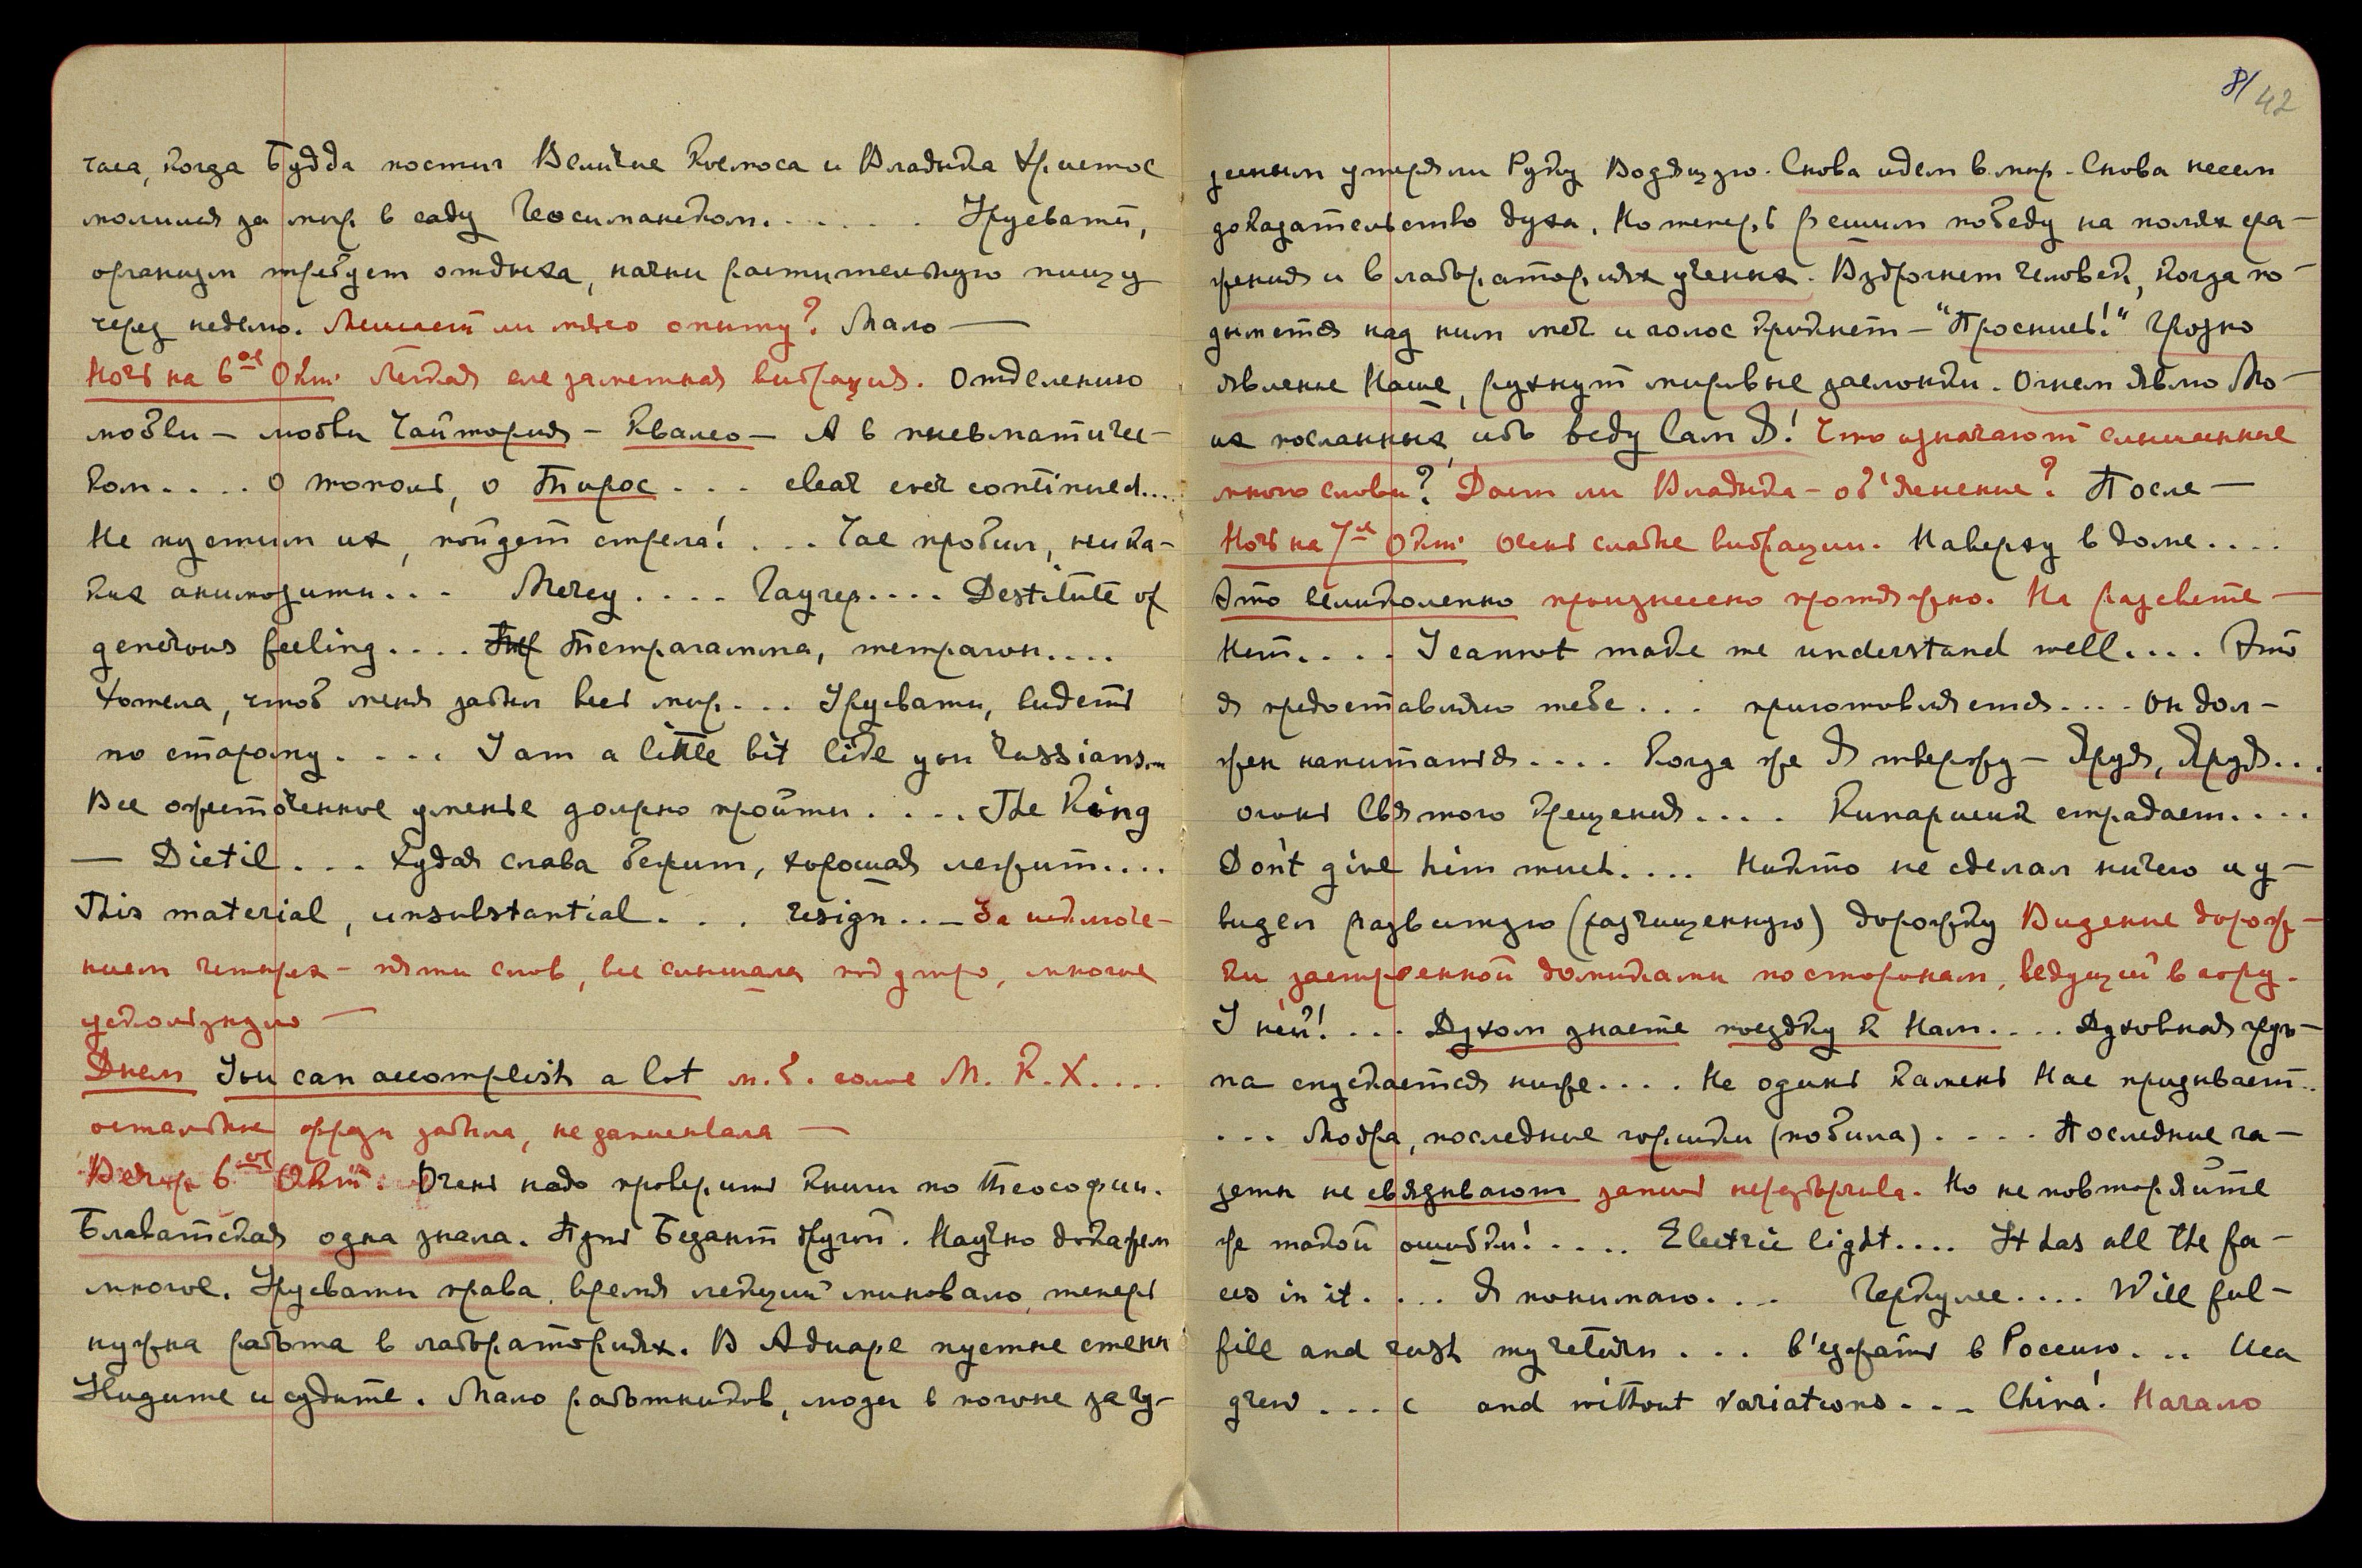 часа, когда Будда постиг Величие Космоса и Владыка Христос
молился за мир в саду Геосиманском. . . . . . Урусвати,
организм требует отдыха, начни растительную пищу
через неделю. Мешает ли мясо опыту? Мало —
Ночь на 6ое Окт. Легкая еле заметная вибрация. Отделению
любви — любви Чайтория — Квалео — А в пневматичес-
ком . . . . О тополь, о Тирос . . . clear ever continued....
Не пустим их, пойдет стрела! . . . Час пробил, ника-
ких . . . Мечеу . . . . Гаучер . . . . Destitute of
generous feeling . . . . Тетраграмма, тетрагон . . . .
Хотела, чтоб меня забыл весь мир . . . Урусвати, видеть
по старому . . . . I am a little bit like you russians...
Все ожесточенное уменье должно пройти . . . . The King
— Dictil . . . Худая слава бежит, хорошая лежит . . . .
This material, unsubstantial . . . resign . . — За исключе-
нием четырех — пяти слов, все слышала под утро, многое
ускользнуло —
Днем You can accomplish a lot м. б. голос М. К. Х. . . .
остальные фразы забыла, не записывала —
Вечер 6ое Окт. Очень надо проверить книги по Теософии.
Блаватская одна знала. Путь Безант другой. Научно докажем
многое. Урусвати права, время лекций миновало, теперь
нужна работа в лабораториях. В Адиаре пустые стены
Судите и судите. Мало работников, люди в погоне за чу-
8/ 42
десным утеряли Руку Водящую. Снова идем в мир. Снова несем
доказательство духа, Но теперь решим победу на полях сра-
жения и в лабораториях ученых. Вздрогнет человек, когда по-
дымется над ним меч и голос крикнет — "Проснись!" Грозно
явление Наше, рухнут мировые заслонки. Огнем явлю Мо-
их посланных, ибо веду Сам Я! Что означают слышанные
мною слова? Даст ли Владыка — об'яснение? После —
Ночь на 7ое Окт. Очень слабые вибрации. Наверху в доме . . . .
Это великолепно произнесено протяжно. На рассвете —
Нет . . . . I cannot make me understand well . . . . Это
я предоставляю тебе . . . приготовляется . . . . Он дол-
жен напитаться . . . . Когда же Я твержу — Яруя, Яруя . . .
огонь Святого Крещения . . . . Кипарисик страдает . . . .
Don't give him much . . . . Никто не сделал ничего и у-
видел развитую (расчищенную) дорожку Видение дорож-
ки, застроенной домиками по сторонам, ведущий в гору.
У ней! . . . Духом знаете поездку к Нам . . . . Духовная
на спускается ниже . . . . Не одинь Камень Нас призывает . .
. . . Мобра, последние горшки (побила) . . . . Последние га-
зеты не связывают запись неразборчива. Но не повторяйте
же такой ошибки! . . . . Electric light . . . . It has all the fa-
ces in it . . . . Я понимаю . . . Геркулес . . . . Will ful-
fill and rush my return . . . в'езжать в Россию . . . Иса
grew . . . с and without variations . . . — China! Начало